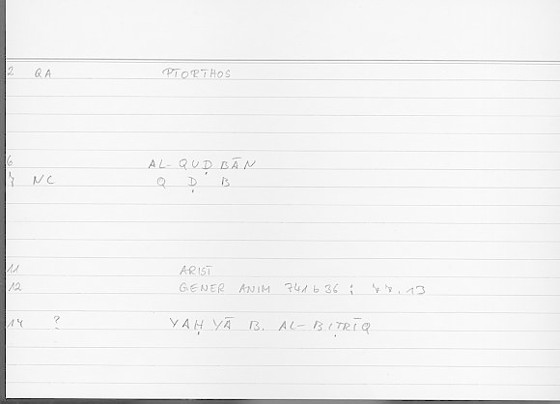 2 QA PTORTHOS
6 AL-QUḌBĀN
NC Q Ḍ B
11 ARIST
12 GENER ANIM 741b36 ; 44.13
14 ? YAḤYĀ B. AL-BIṬRĪQ